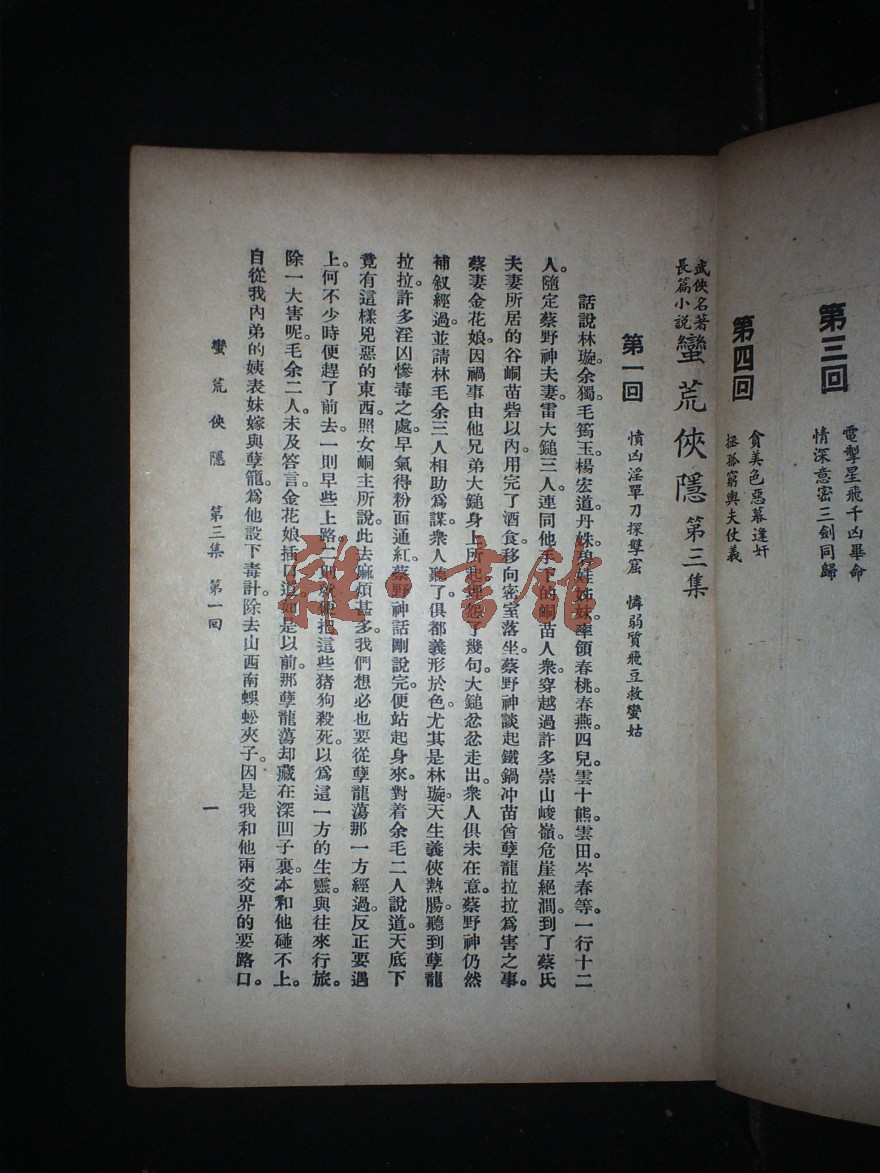 第三回
電掣星飛千凶畢命
情深意密三劍同歸
第四回
貪美色惡幕逢奸
拯孤窮輿夫仗義
武俠名著
長篇小說
蠻荒俠隱第三集
第一回
憤凶淫單刀探孽窟 憐弱質飛豆救蠻姑
話說林璇余獨毛筠玉楊宏道丹姝碧娃姊妹率領春桃春燕四兒。雲十熊。雲田岑春等。一行十二
人。隨定蔡野神夫妻雷大鎚三人。連同他手下的峒苗人衆。穿越過許多崇山峻嶺。危崖絕澗。到了蔡氏
夫妻所居的谷峒苗砦以內。用完了酒食。移向密室落坐。蔡野神談起鐵鍋冲苗酋孽龍拉拉爲害之事。
蔡妻金花娘。因禍事由他兄弟大鎚身上所起。埋怨了幾句。大鎚忿忿走出。衆人俱未在意。蔡野神仍然
補叙經過。並請林毛余三人相助爲謀。衆人聽了。俱都義形於色。尤其是林璇。天生義俠熱腸。聽到孽龍
拉拉。許多淫凶慘毒之處。早氣得粉面通紅。蔡野神話剛說完。便站起身來。對着余毛二人說道。天底下
竟有這樣兇惡的東西。照女峒主所說。此去麻煩甚多。我們想必也要從孽龍蕩那一方經過。反正要遇
上。何不少時便趕了前去。一則早些上路。二則就便把這些猪狗殺死。以爲這一方的生靈。與往來行旅。
除一大害呢。毛余二人。未及答言。金花娘插口道。如是以前。那孽龍蕩却藏在深凹子裏。本和他碰不上。
自從我內弟的姨表妹嫁與孽龍。爲他設下毒計。除去山西南蜈蚣夾子。因是我和他兩交界的要路口。
蠻荒俠隱 第三集 第一回
一
雜·書館